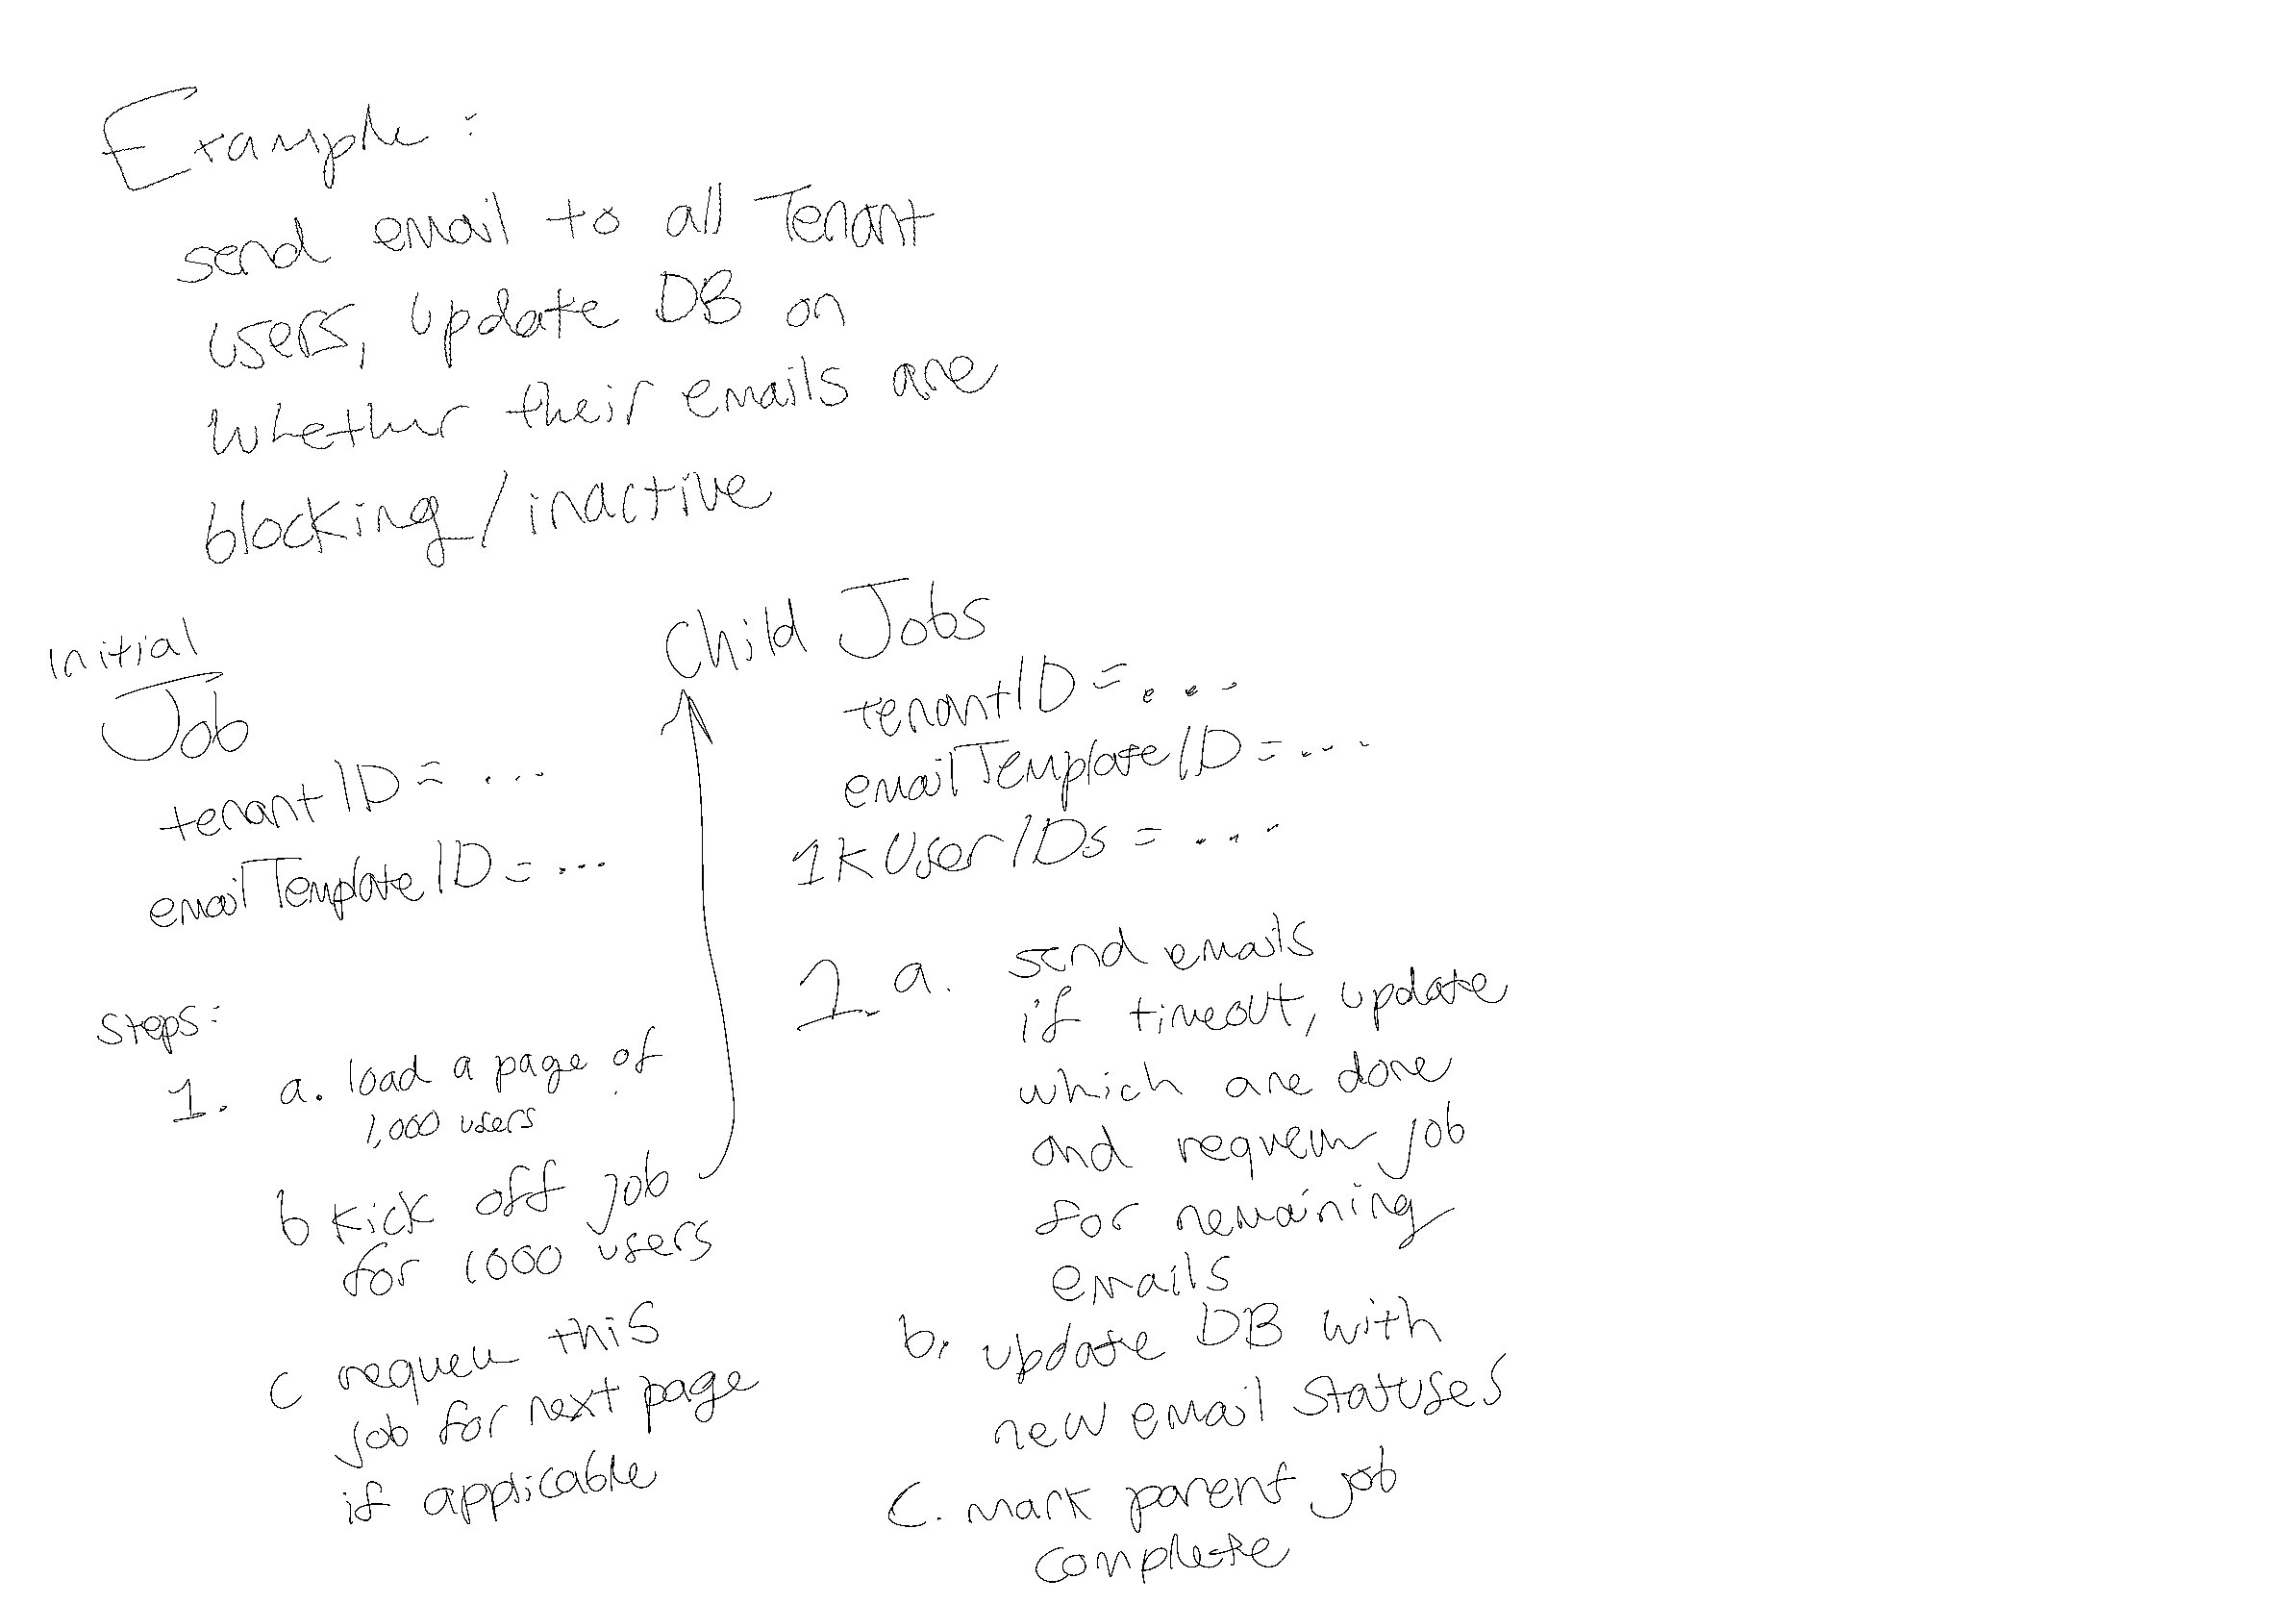 Example:
send email to all Tenant
users, update DB on
whether their emails are
blocking/inactive
Initial
Job
tenantID = ...
emailTemplateID = ...
Steps:
1. a. load a page of
1,000 users
b kick off job
for 1000 users
c requeue this
job for next page
if applicable
Child Jobs
tenantID = ...
emailTemplateID = ...
1K UserIDs = ...
1. a. send emails
if timeout, update
which are done
and requeue job
for remaining
emails
b. update DB with
new email statuses
C. mark parent job
complete